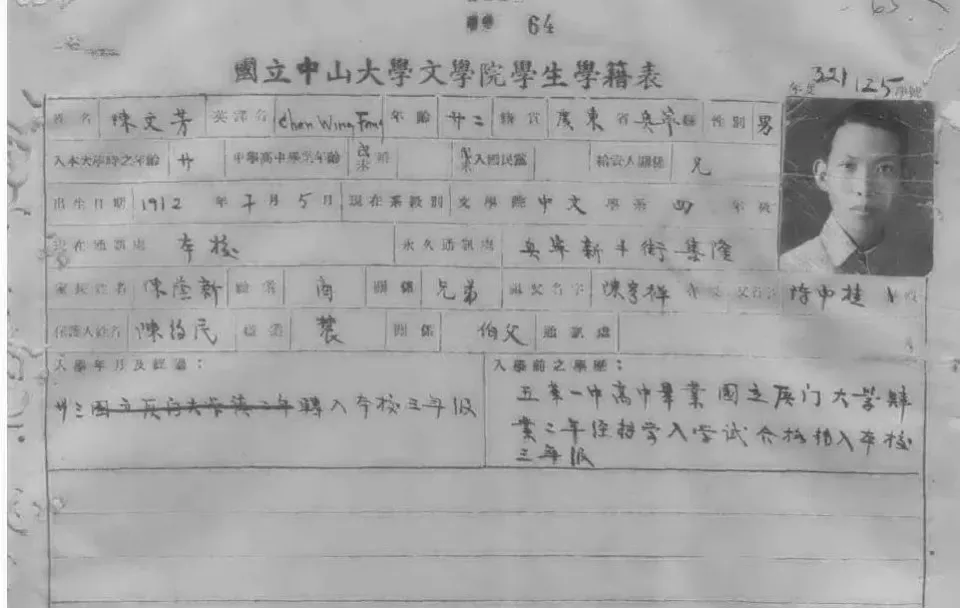 64
國立中山大學文學院學生學籍表
年度 321125 學號
姓名 陳文芳 英譯名 Chan Wing Fong 年齡 廿二 籍貫 廣東省 縣 性別 男
入本大學時之年齡 廿 中學高中學業年齡 入國民黨 關係 兄
出生日期 1912年 月5日 現在系級別 文學院中文學系四年級
現在通訊處 本校 永久通訊處 新 街集隆
家長姓名 陳 新 職業 商 關係 兄弟 祖父名字 陳亨祥 父名
保護人姓名 陳 民 職業 農 關係 伯父 通訊處
入學年月及經過:
入學前之學歷:
廿三國立厦门大学 二年轉入本校三年級
五華一中高中畢業國立厦门大學肄
業二年 轉学入学試合格 入本校
三年級